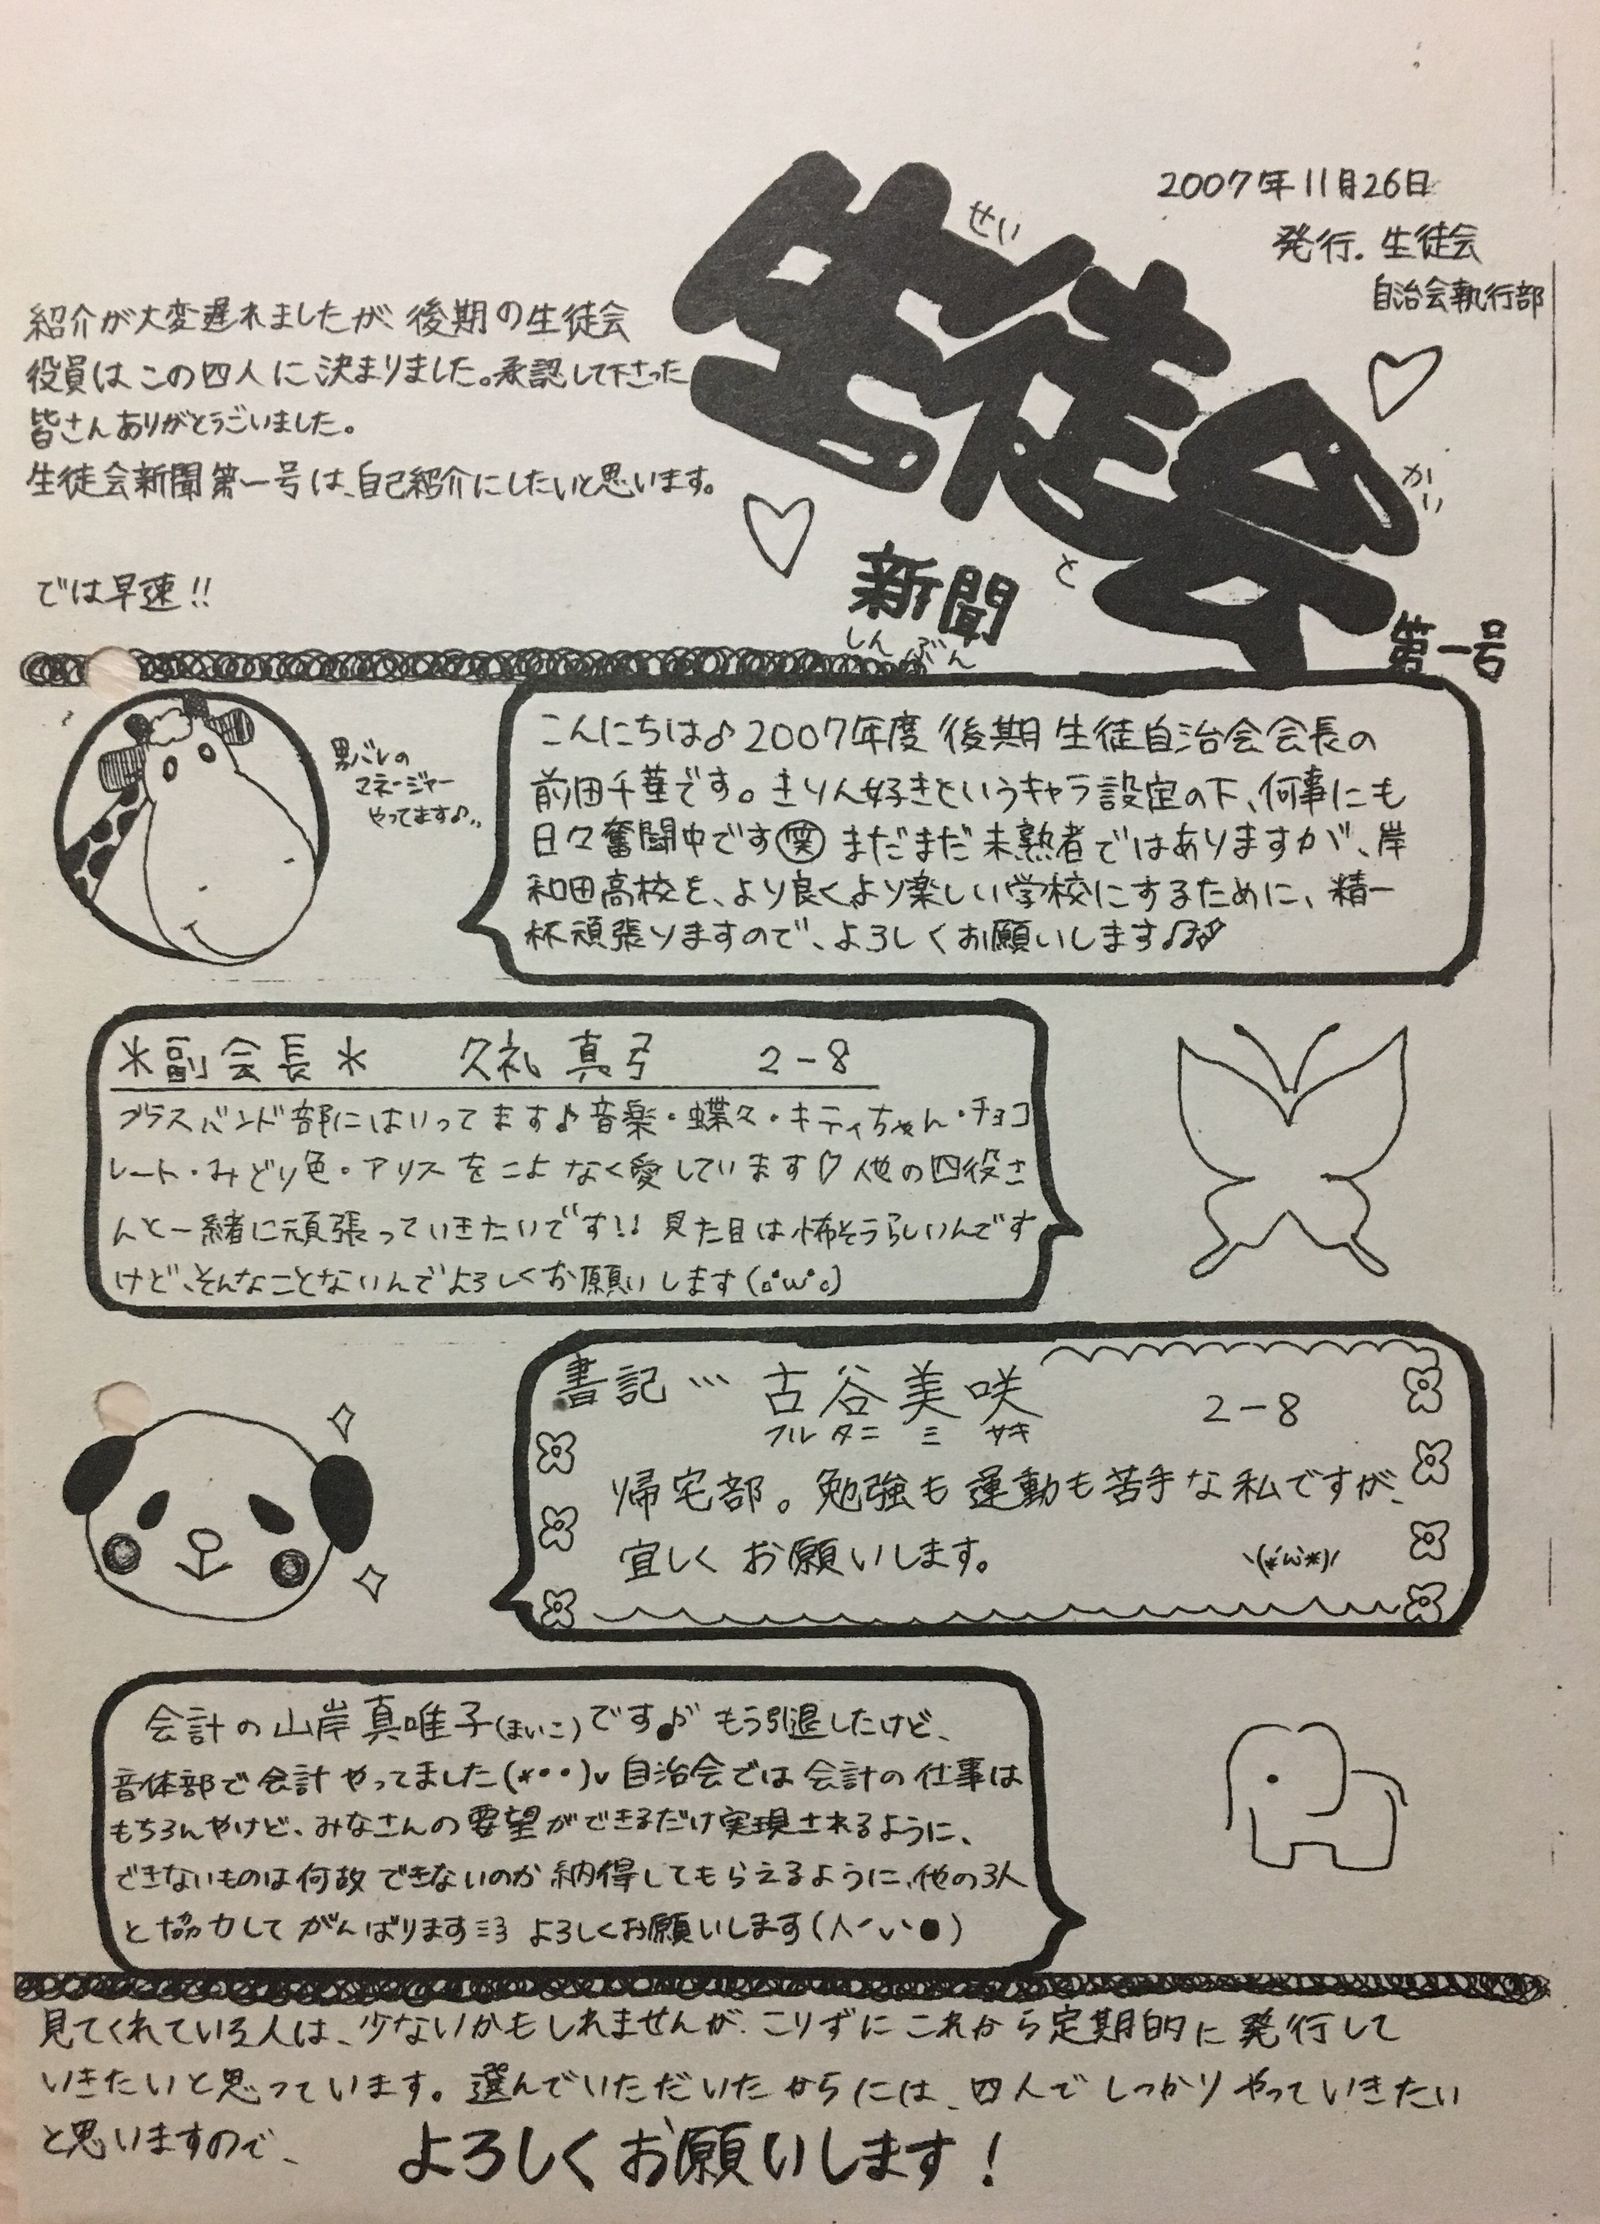 2007年11月26日
発行.生徒会
自治会執行部
生徒会
せい
と
かい
新聞
しんぶん
第一号
紹介が大変遅れましたが、後期の生徒会
役員はこの四人に決まりました。承認して下さった
皆さんありがとうございました。
生徒会新聞第一号は、自己紹介にしたいと思います。
では早速!!
男バレの
マネージャー
やってます♪
こんにちは♪2007年度後期生徒自治会会長の
前田千華です。きりん好きというキャラ設定の下、何事にも
日々奮闘中です㊗まだまだ未熟者ではありますが、岸
和田高校を、より良くより楽しい学校にするために、精一
杯頑張りますので、よろしくお願いします♪♪
*副会長* 久礼真弓 2-8
ブラスバンド部にはいってます♪音楽・蝶々・キティちゃん・チョコ
レート・みどり色・アリスをこよなく愛しています♡他の四役さ
んと一緒に頑張っていきたいです!!見た目は怖そうらしいんです
けど、そんなことないんでよろしくお願いします(。・ω・。)
書記… 古谷美咲 2-8
フルタニ ミ サキ
帰宅部。勉強も運動も苦手な私ですが、
宜しくお願いします。 ヽ(*´ω`*)ノ
会計の山岸真唯子(まいこ)です♪もう引退したけど、
音体部で会計やってました(*・・)v自治会では会計の仕事は
もちろんやけど、みなさんの要望ができるだけ実現されるように、
できないものは何故できないのか納得してもらえるように、他の3人
と協力してがんばりますミ3 よろしくお願いします(人´v`●)
見てくれている人は、少ないかもしれませんが、こりずにこれから定期的に発行して
いきたいと思っています。選んでいただいたからには、四人でしっかりやっていきたい
と思いますので、 よろしくお願いします!